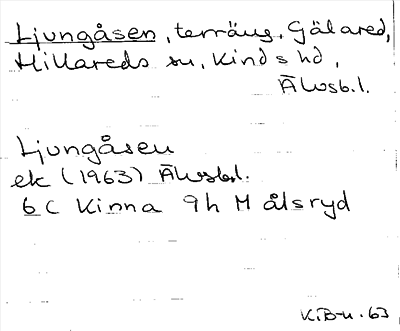 Ljungåsen, terräng, Gälared,
Hillareds sn, Kinds hd,
Älvsb.l.
Ljungåsen
ek (1963) Älvsb.l.
6C Kinna 9h Målsryd
K.B-n. 63